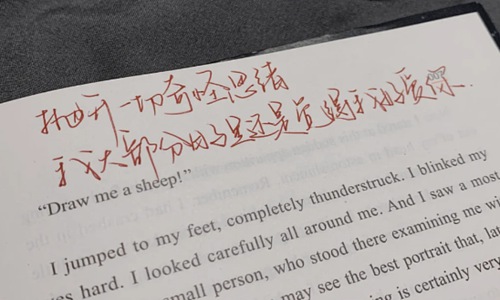 抛开一切奇怪思绪
我大部分时候还是觉得
“Draw me a sheep!”
I jumped to my feet, completely thunderstruck. I blinked my
es hard. I looked carefully all around me. And I saw a most
small person, who stood there examining me wi
may see the best portrait that, lat
ng is certainly very